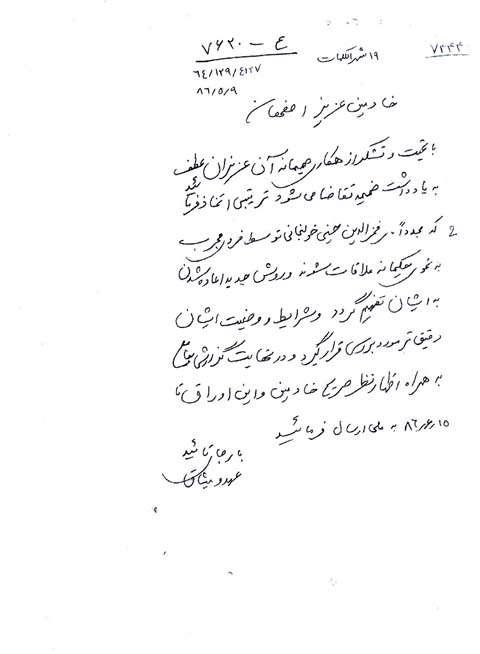 ع - ۷۶۲۰
۶۴/۱۲۹/۴۱۲۷
۸۶/۵/۹
۱۹ شهرالکلمات
۷۲۴۴
خادمین عزیز اصفهان
با تحیت و تشکر از همکاری صمیمانه آن عزیزان عطف
به یادداشت ضمیمه تقاضا می شود ترتیبی اتخاذ فرمائید
که مجدداً فخرالدین حسینی توسط فردی مجرب
به نحوی حکیمانه ملاقات شوند و روش جدید اعاده شدن
به ایشان تفهیم گردد و شرایط و وضعیت ایشان
دقیق تر مورد بررسی قرار گیرد و در نهایت گزارش جامع
به همراه اظهار نظر صریح خادمین و این اوراق تا
۸۶ به ملی ارسال فرمائید
با رجای تائید
عهد و میثاق